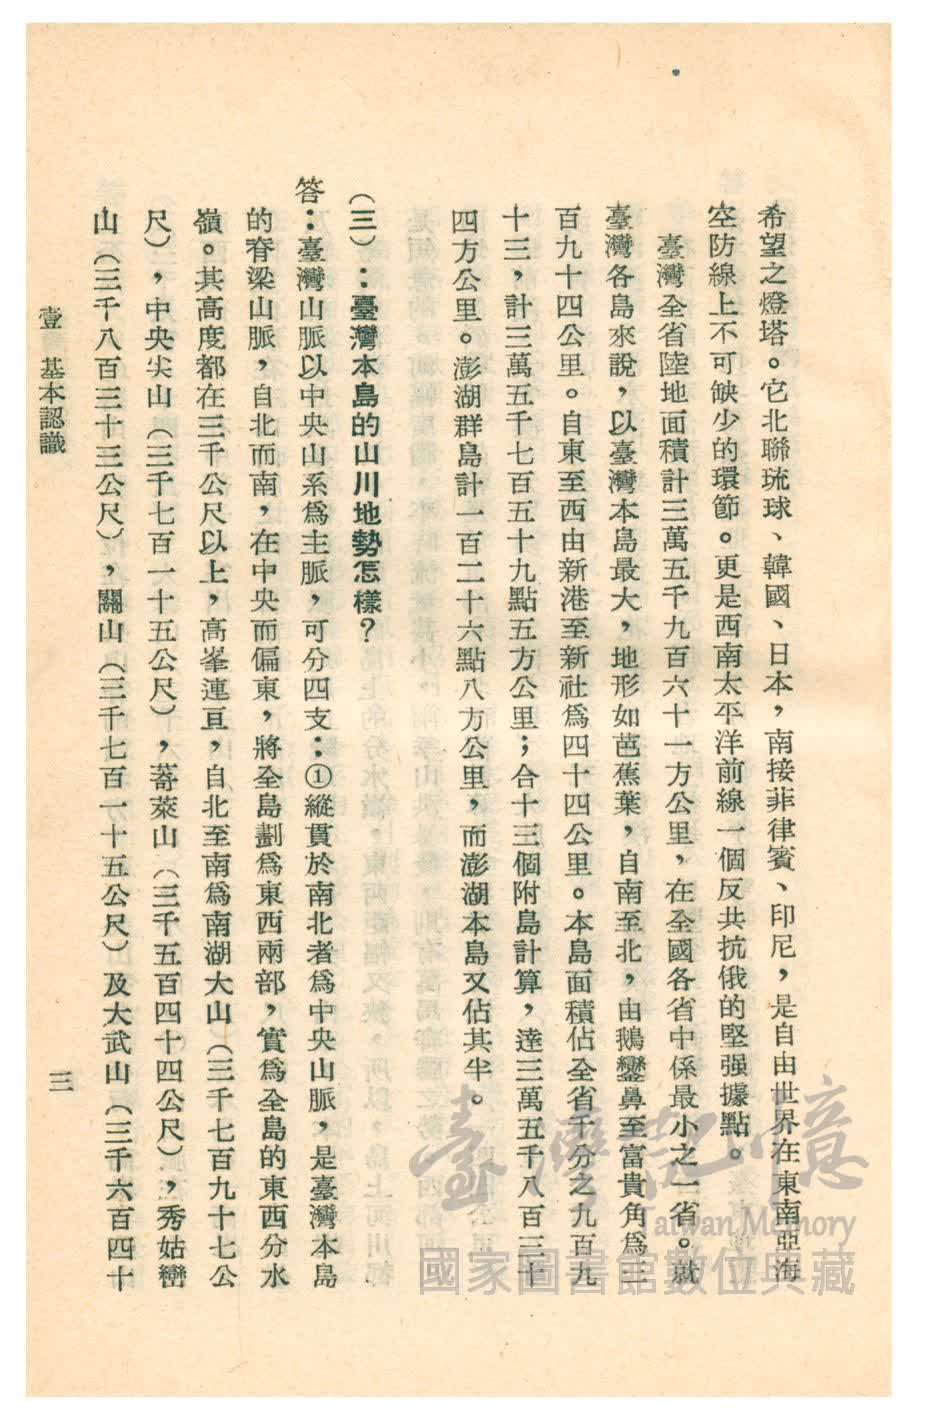 希望之燈塔。它北聯琉球、韓國、日本，南接菲律賓、印尼，是自由世界在東南亞海
空防線上不可缺少的環節。更是西南太平洋前線一個反共抗俄的堅强據點。
臺灣全省陸地面積計三萬五千九百六十一方公里，在全國各省中係最小之一省。就
臺灣各島來說，以臺灣本島最大，地形如芭蕉葉，自南至北，由鵝鑾鼻至富貴角爲三
百九十四公里。自東至西由新港至新社爲四十四公里。本島面積佔全省千分之九百九
十三，計三萬五千七百五十九點五方公里；合十三個附島計算，達三萬五千八百三十
四方公里。澎湖群島計一百二十六點八方公里，而澎湖本島又佔其半。
（三）：臺灣本島的山川地勢怎樣？
答：臺灣山脈以中央山系爲主脈，可分四支：①縱貫於南北者爲中央山脈，是臺灣本島
的脊梁山脈，自北而南，在中央而偏東，將全島劃爲東西兩部，實爲全島的東西分水
嶺。其高度都在三千公尺以上，高峯連亘，自北至南爲南湖大山（三千七百九十七公
尺），中央尖山（三千七百一十五公尺），蒼萊山（三千五百四十四公尺），秀姑巒
山（三千八百三十三公尺），關山（三千七百一十五公尺）及大武山（三千六百四十
壹 基本認識
三
臺灣記憶
Taiwan Memory
國家圖書館數位典藏